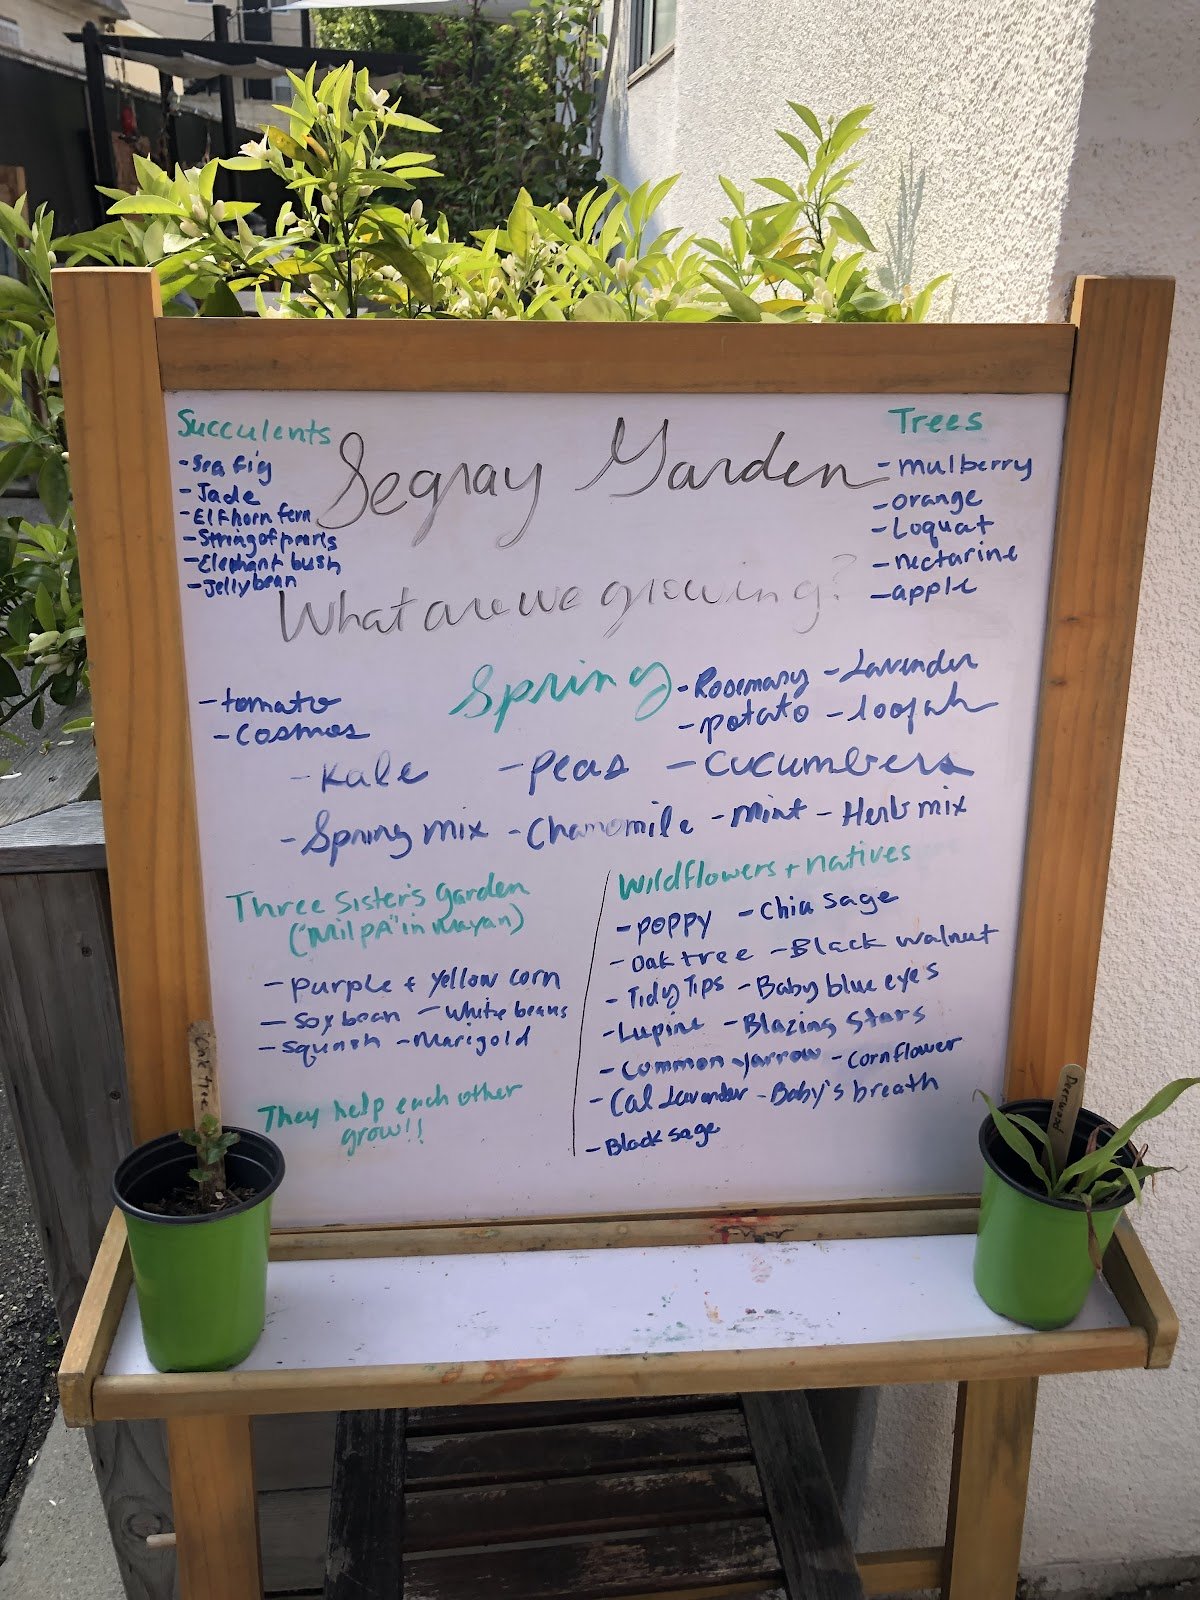 Succulents
- Sea fig
- Jade
- Elkhorn fern
- String of pearls
- Elephant bush
- Jellybean
Segray Garden
Trees
- mulberry
- orange
- Loquat
- nectarine
- apple
What are we growing?
Spring
- tomato
- cosmos
- Rosemary - Lavender
- potato - loofah
- Kale - Peas - Cucumbers
- Spring mix - Chamomile - Mint - Herb mix
Three Sister's Garden
("MilPA" in Mayan)
- Purple + Yellow corn
- Soybean - White beans
- squash - Marigold
They help each other
grow!!
Wildflowers + natives
- Poppy - Chia sage
- Oak tree - Black walnut
- Tidy Tips - Baby blue eyes
- Lupine - Blazing Stars
- Common yarrow - Cornflower
- Cal Lavender - Baby's breath
- Black sage
Oak tree
Deerwood